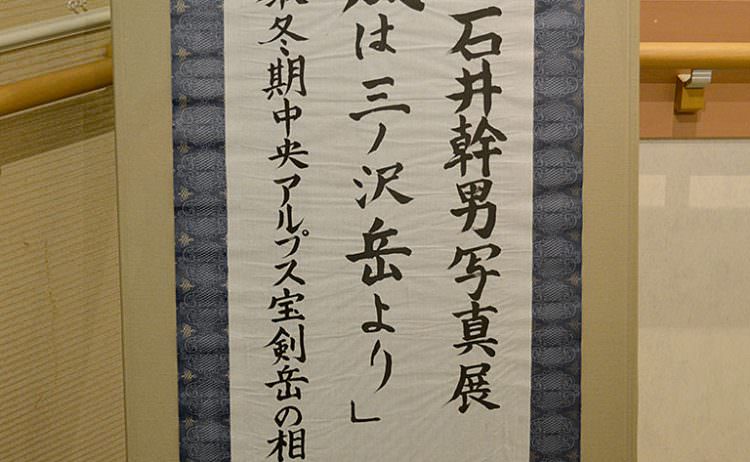 石井幹男写真展
は三ノ沢岳より」
冬期中央アルプス宝剣岳の相